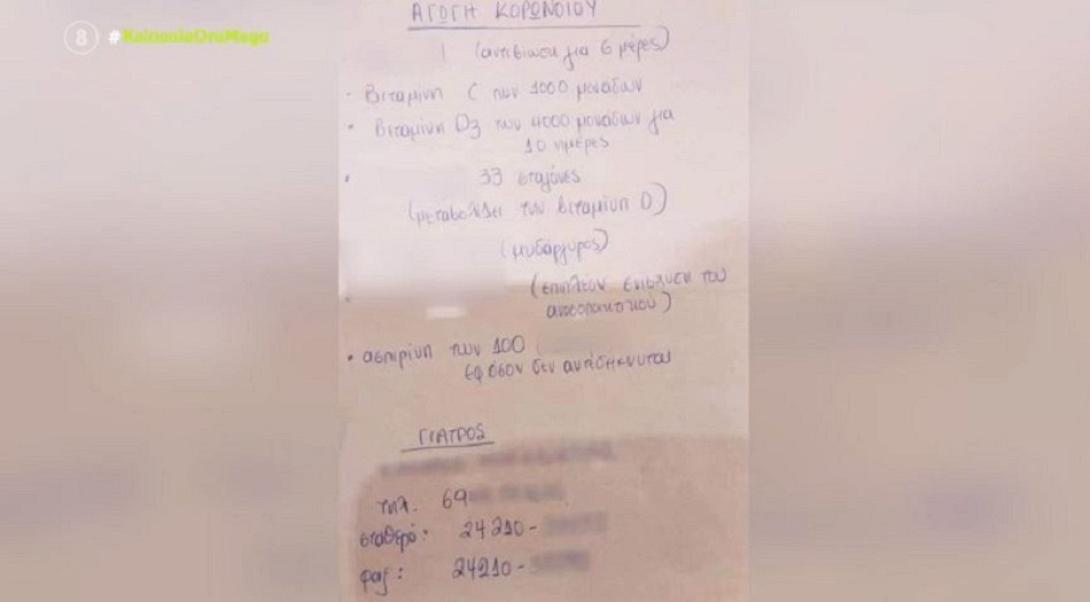 8 #KoinoniaOraMega
ΑΓΩΓΗ ΚΟΡΩΝΟΙΟΥ
(αντιβίωση για 6 μέρες)
· Βιταμίνη C των 1000 μονάδων
· Βιταμίνη D3 των 4000 μονάδων για
10 ημέρες
· 33 σταγόνες
(μεταβολίζει την βιταμίνη D)
(μυδάργυρος)
(επιπλέον ενίσχυση του
ανοσοποιητικού)
· ασπιρίνη των 100 (
εφόσον δεν αντεδείκνυται
ΓΙΑΤΡΟΣ
τηλ. 69
σταθερό: 24210-
φαξ: 24210-